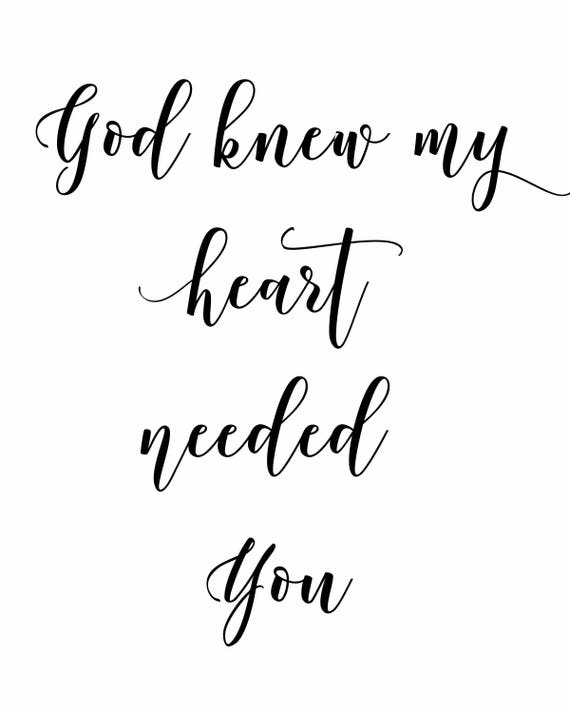 God knew my
heart
needed
You